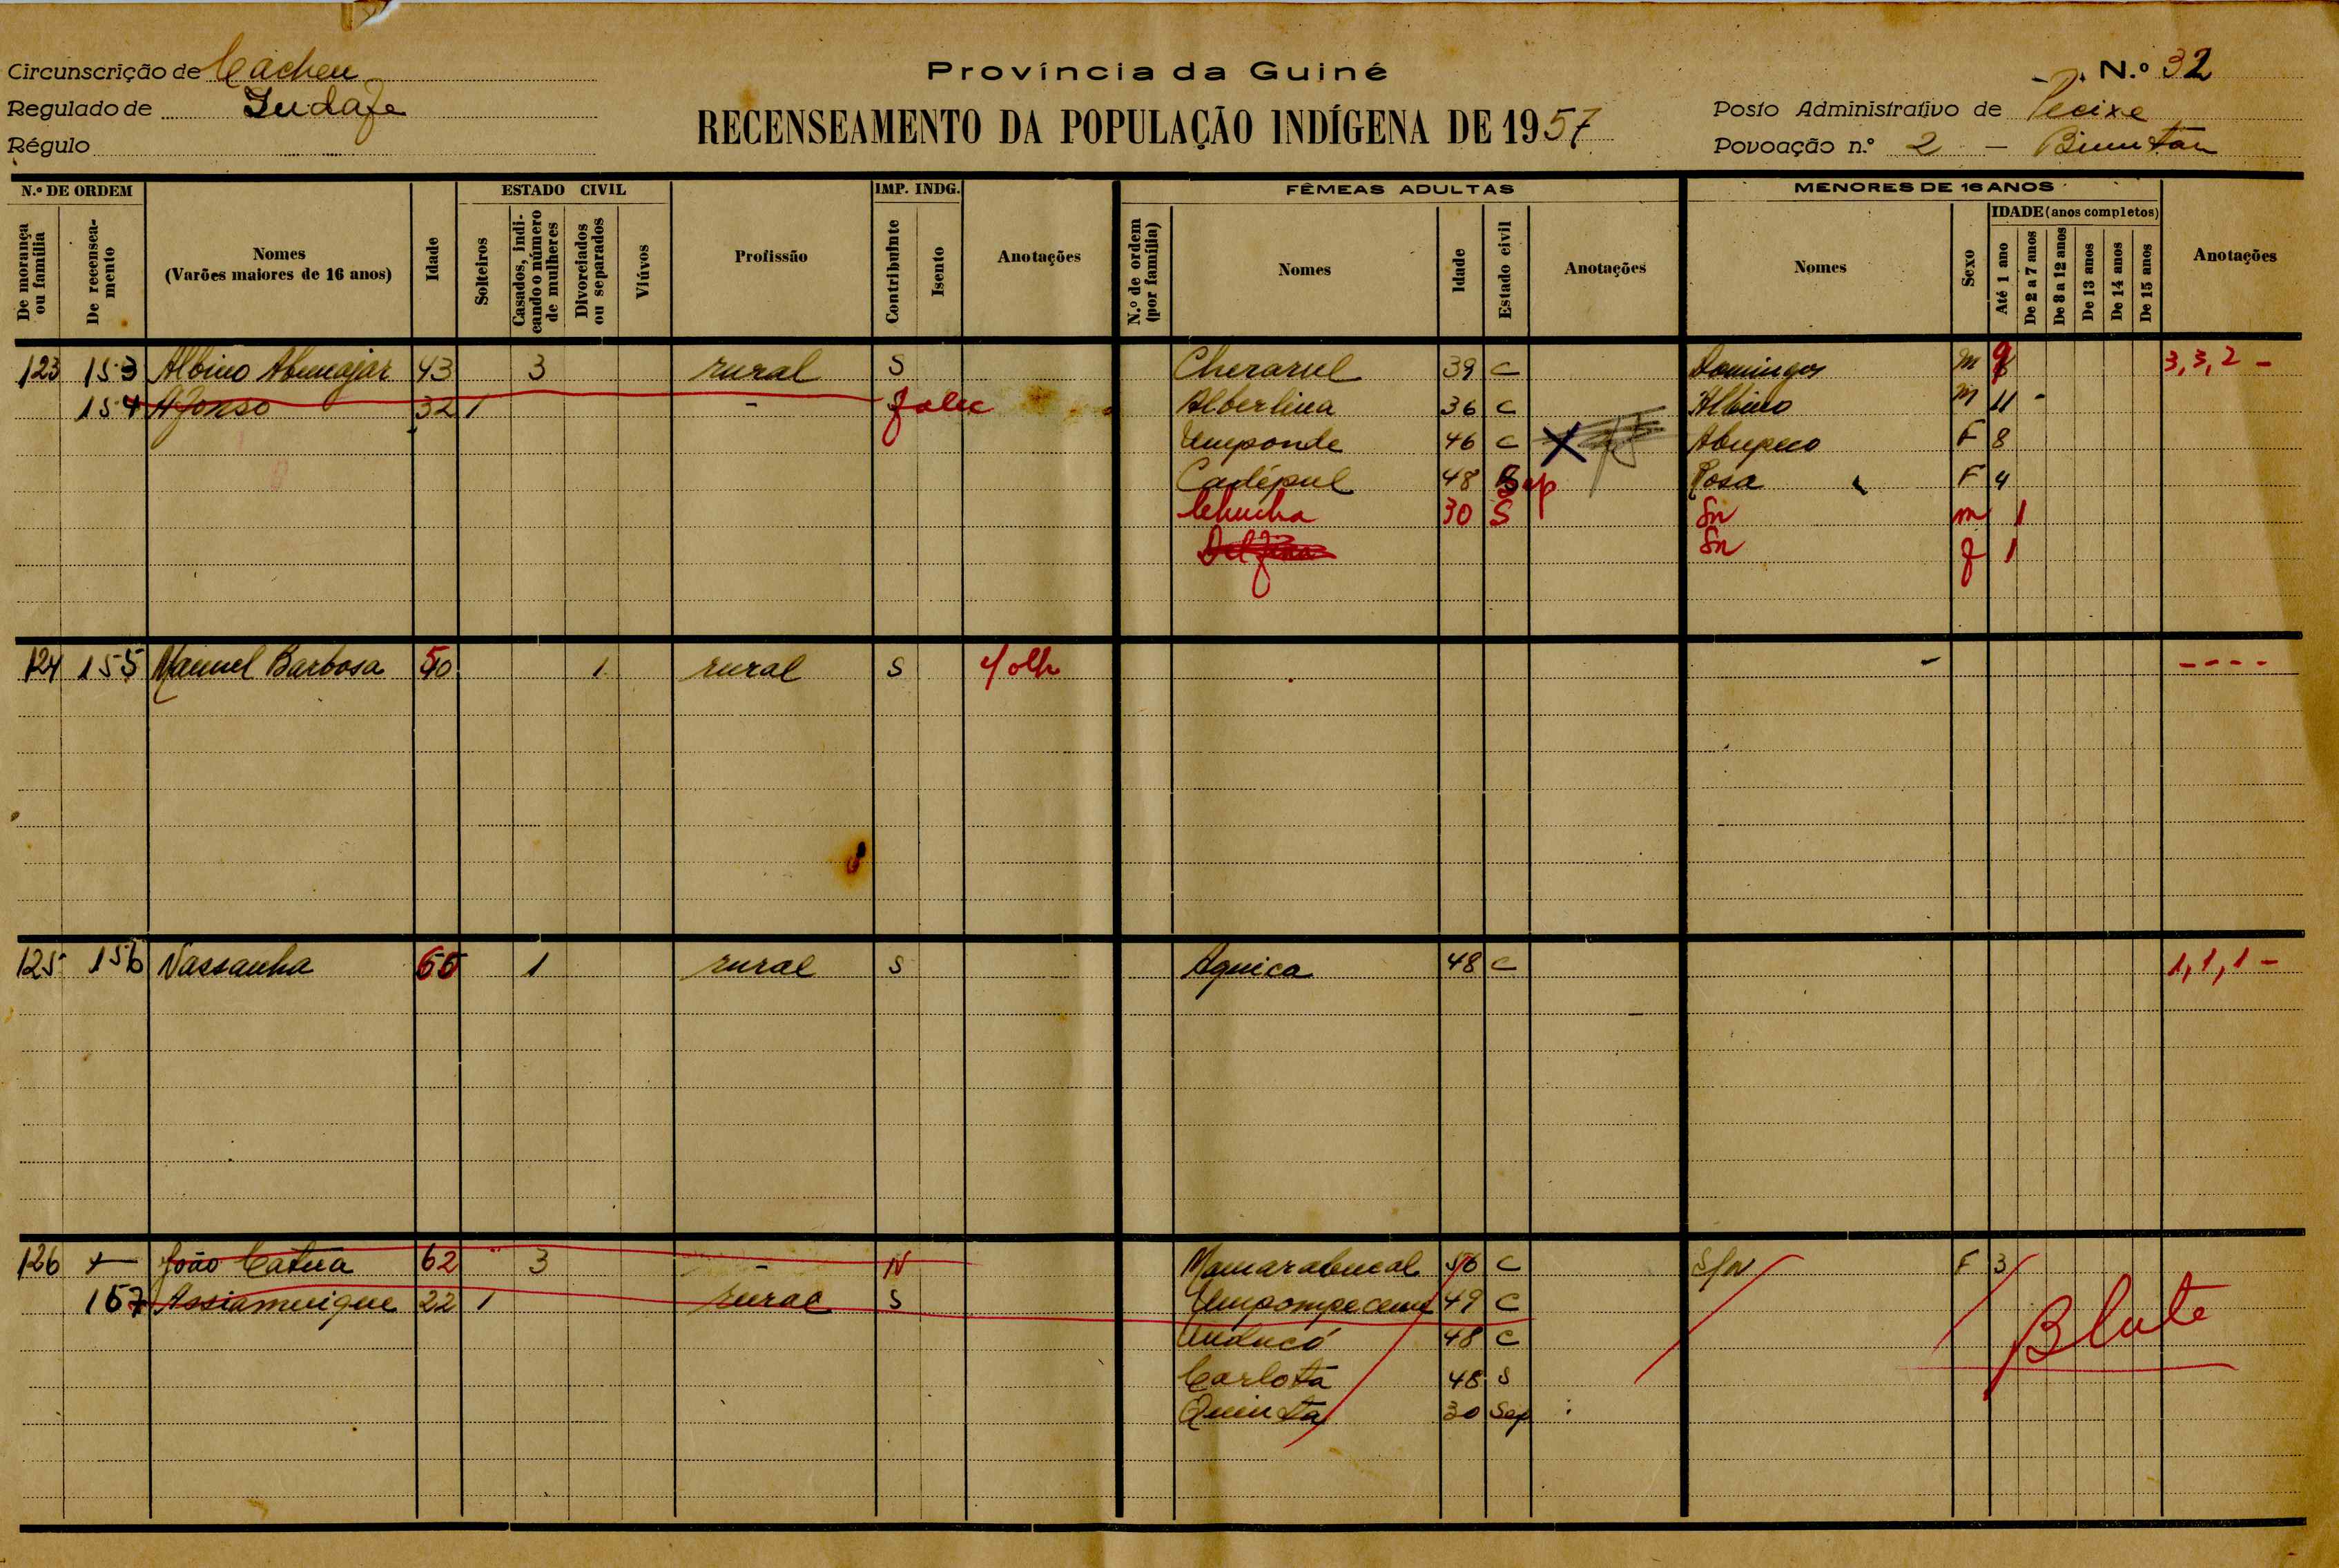 Província da Guiné
N.º 32
Circunscrição de Cacheu
Regulado de
Régulo
RECENSEAMENTO DA POPULAÇÃO INDÍGENA DE 1957
Posto Administrativo de Pecixe
Povoação n.º 2 –
N.º DE ORDEM
De morança ou família
De recenseamento
Nomes
(Varões maiores de 16 anos)
Idade
ESTADO CIVIL
Solteiros
Casados, indicando o número de mulheres
Divorciados ou separados
Viúvos
Profissão
IMP. INDG.
Contribuinte
Isento
Anotações
FÊMEAS ADULTAS
N.º de ordem (por família)
Nomes
Idade
Estado civil
Anotações
MENORES DE 16 ANOS
Nomes
Sexo
IDADE (anos completos)
Até 1 ano
De 2 a 7 anos
De 8 a 12 anos
De 13 anos
De 14 anos
De 15 anos
Anotações
123 153 Albino 43 3 rural S 39 C Domingos M 3, 3, 2 –
154 Afonso 32 1 – Albertina 36 C Albino M 11 -
Umponde 46 C X F 8
48 Sep Rosa F 4
30 S Sn m 1
Delfina Sn f 1
124 155 Manuel Barbosa 50 1 rural S - - - - -
125 156 Nassanha 1 rural S Aquica 48 C 1, 1, 1 –
126 João Catua 62 3 – N 56 C S/n F 3
157 22 1 rural S 49 C
48 C
Carlota 48 S
Quinta 30 Sep